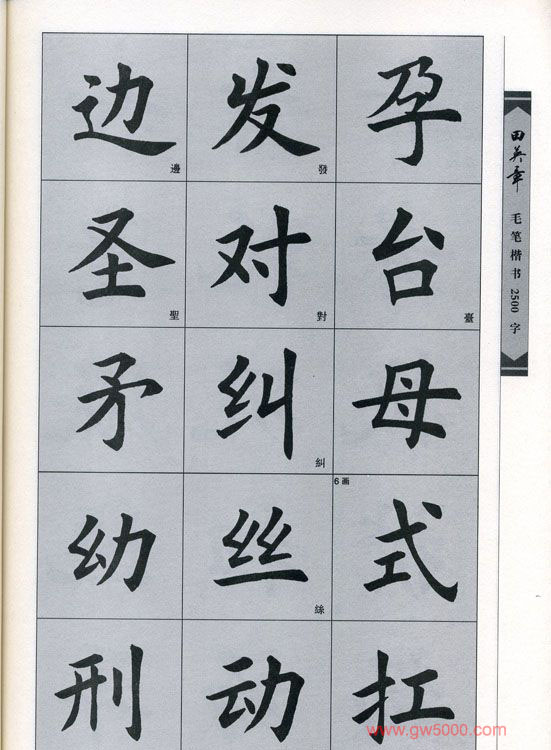 边 邊 发 發 孕
圣 聖 对 對 台 臺
矛 纠 糾 母
幼 丝 絲 6画 式
刑 动 扛
田英章 毛笔楷书2500字
www.gw5000.com